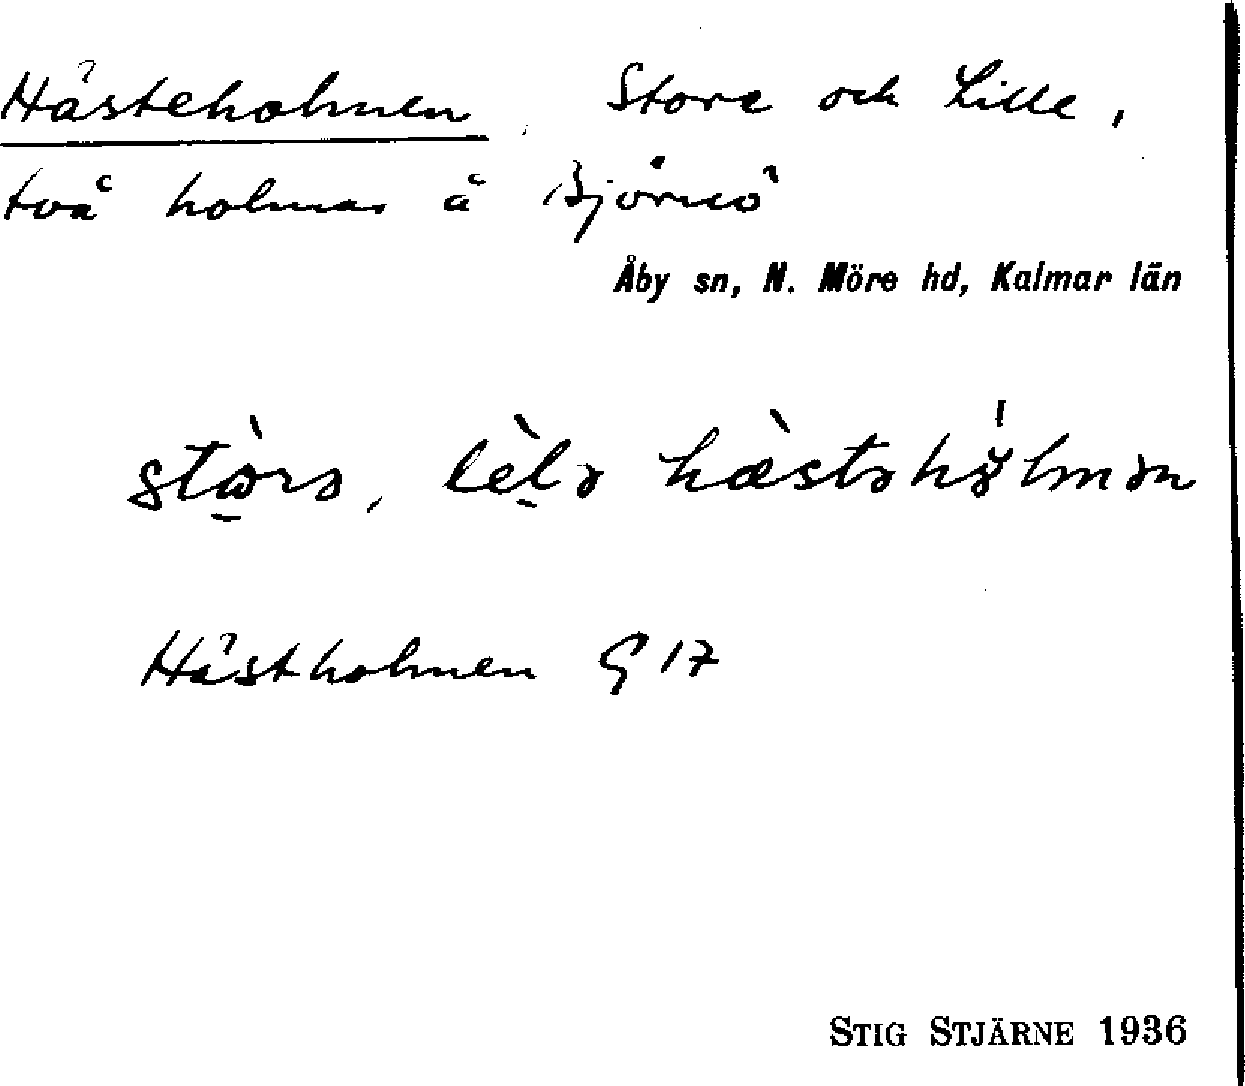 Hästeholmen, Store och Lille,
två holmar å Björnö
Åby sn, N. Möre hd, Kalmar län
Hästholmen G 17
STIG STJÄRNE 1936